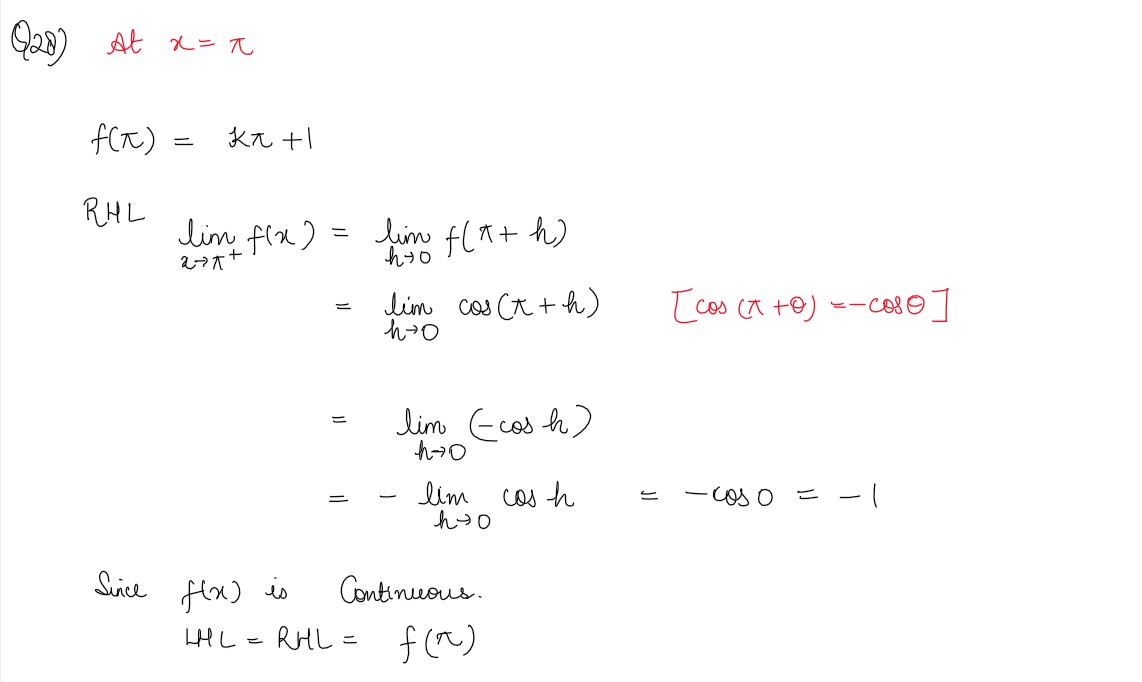 Q28) At x = π
f(π) = kπ + 1
RHL
lim f(x) = lim f(π + h)
x→π⁺ h→0
= lim cos(π + h) [cos (π + θ) = -cosθ]
h→0
= lim (-cos h)
h→0
= - lim cos h = -cos 0 = -1
h→0
Since f(x) is Continuous.
LHL = RHL = f(π)